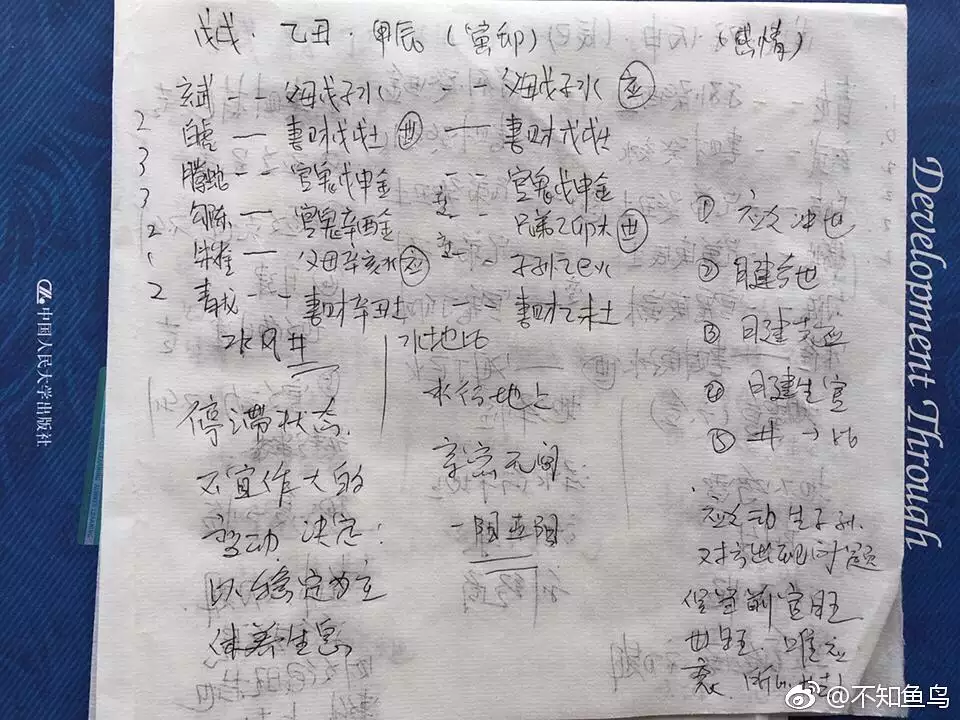 戊戌·乙丑·甲辰(寅卯) (感情)
玄武 -- 父母戊子水 -- 父母戊子水 应
2 白虎 — 妻财戊戌土 世 — 妻财戊戌土
3 腾蛇 -- 官鬼戊申金 -- 官鬼戊申金
3 勾陈 — 官鬼辛酉金 -- 兄弟乙卯木 世
2 朱雀 — 父母辛亥水 应 -- 子孙乙巳火
2 青龙 -- 妻财辛丑土 妻财乙未土
水风井
水地比
停滞状态
不宜作大的
变动 决定:
以稳定为主
休养生息
水行地上
亲密无间
① 应爻冲世
② 月建
③ 月建克应
④ 月建生官
⑤ 井→比
应爻动生子孙
对方出现问题
官旺
世旺 唯应
衰
中国人民大学出版社
Development Through
@不知鱼鸟